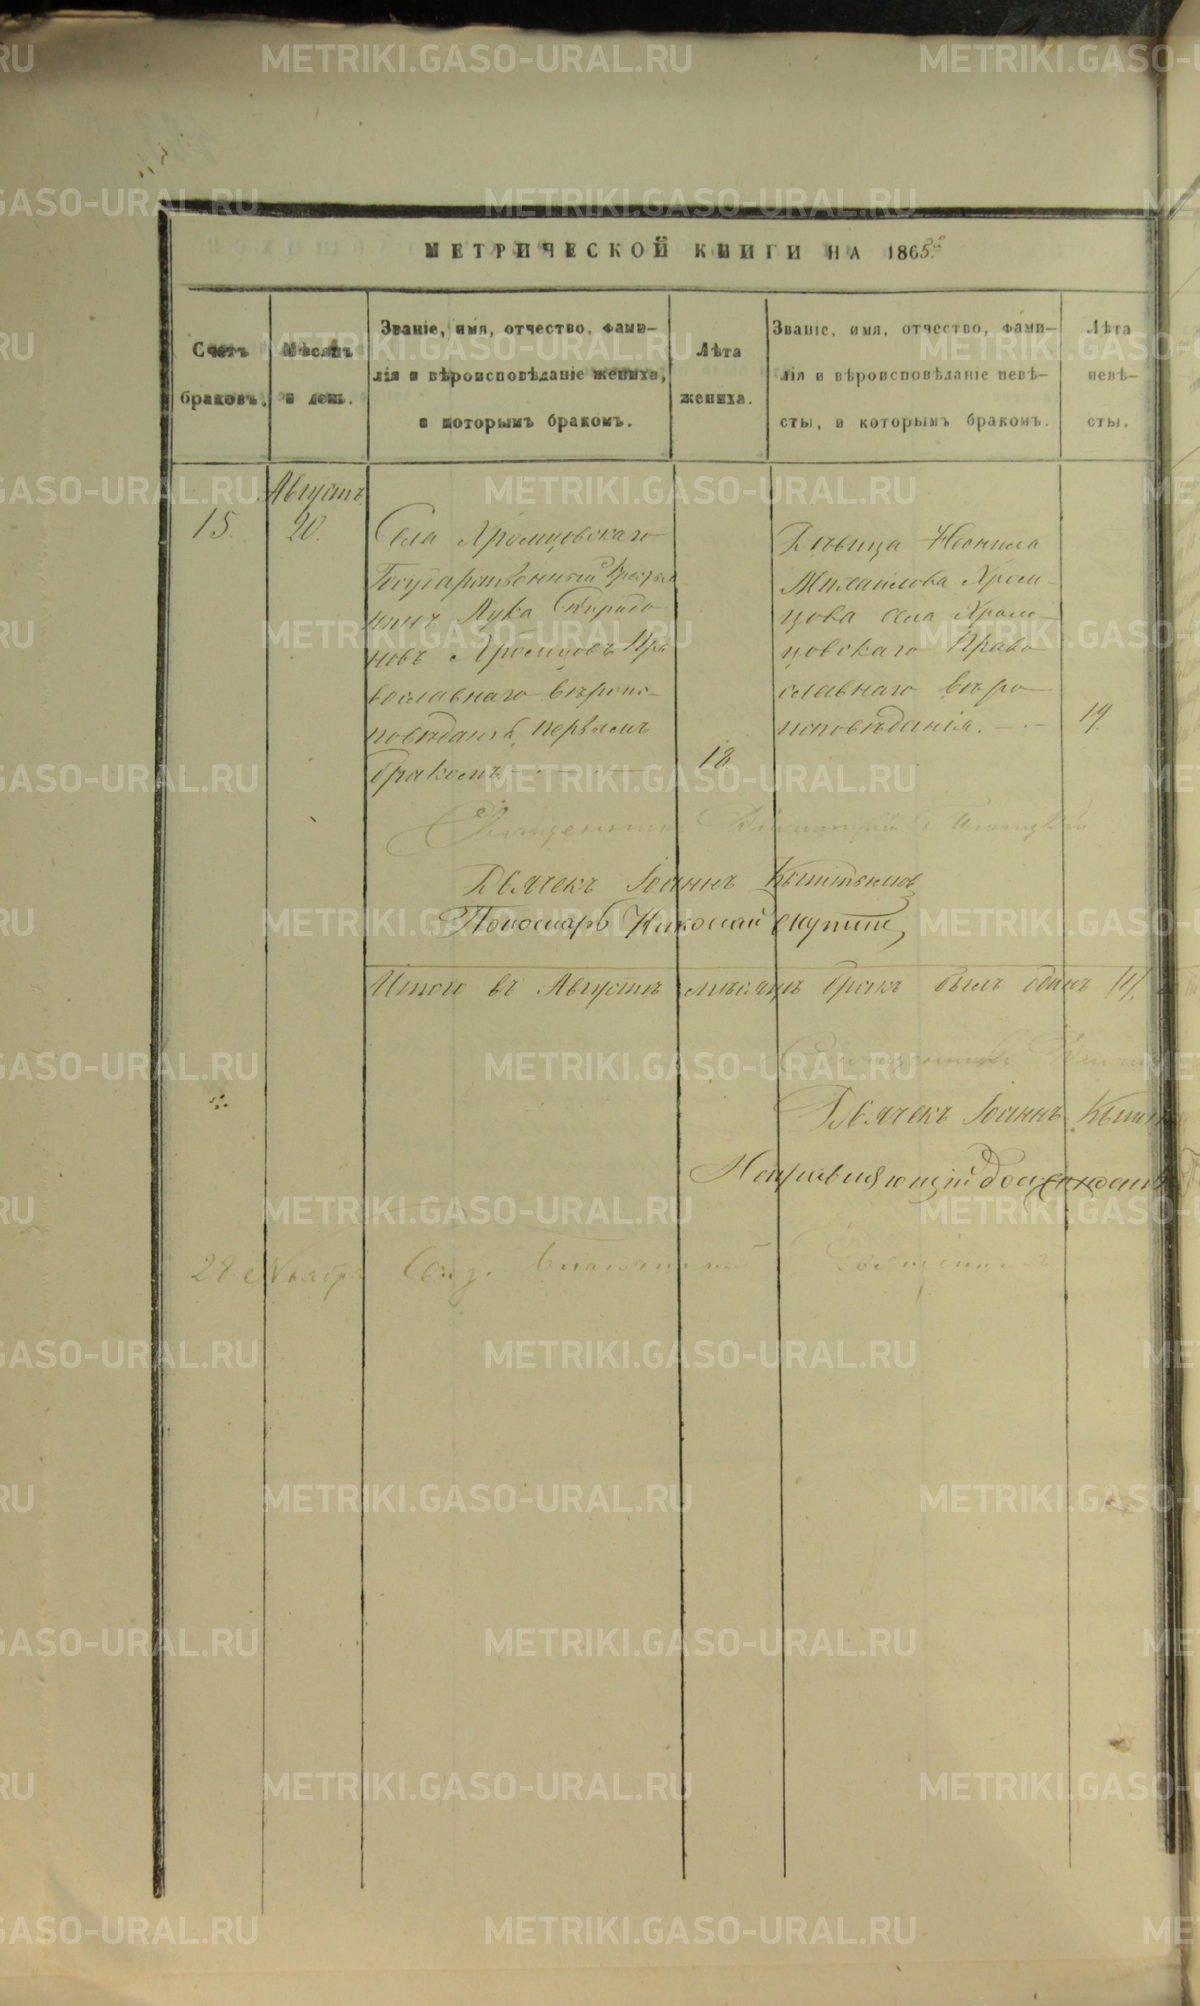 МЕТРИЧЕСКОЙ КНИГИ НА 1865.
Счетъ браковъ.
Мѣсяцъ и день.
Званіе, имя, отчество, фами-
лія и вѣроисповѣданіе жениха,
и которымъ бракомъ.
Лѣта жениха.
Званіе, имя, отчество, фами-
лія и вѣроисповѣданіе невѣ-
сты, и которымъ бракомъ.
Лѣта невѣ-
сты.
Августъ
15.
20.
Села Хромцовскаго
Государственный Крестья
нинъ Лука Спиридо
новъ Хромцовъ Пра
вославнаго вѣроис-
повѣданія, первымъ
бракомъ
18.
Дѣвица Неонила
Михаилова Хром-
цова села Хром-
цовскаго Право
славнаго вѣро
исповѣданія.
19.
Священникъ
Дьячекъ Іоаннъ
Пономарь Николай
Итого въ Августѣ мѣсяцѣ бракъ былъ одинъ /1/.
Священникъ
Дьячекъ Іоаннъ
28
METRIKI.GASO-URAL.RU